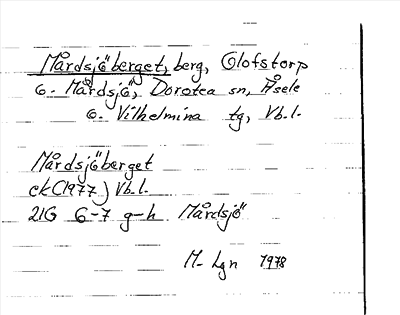 Mårdsjöberget, berg, Olofstorp
o. Mårdsjö, Dorotea sn, Åsele
o. Vilhelmina tg, Vb.l.
Mårdsjöberget
ek(1977) Vb.l.
21G 6-7 g-h Mårdsjö
M- Lgn 1978